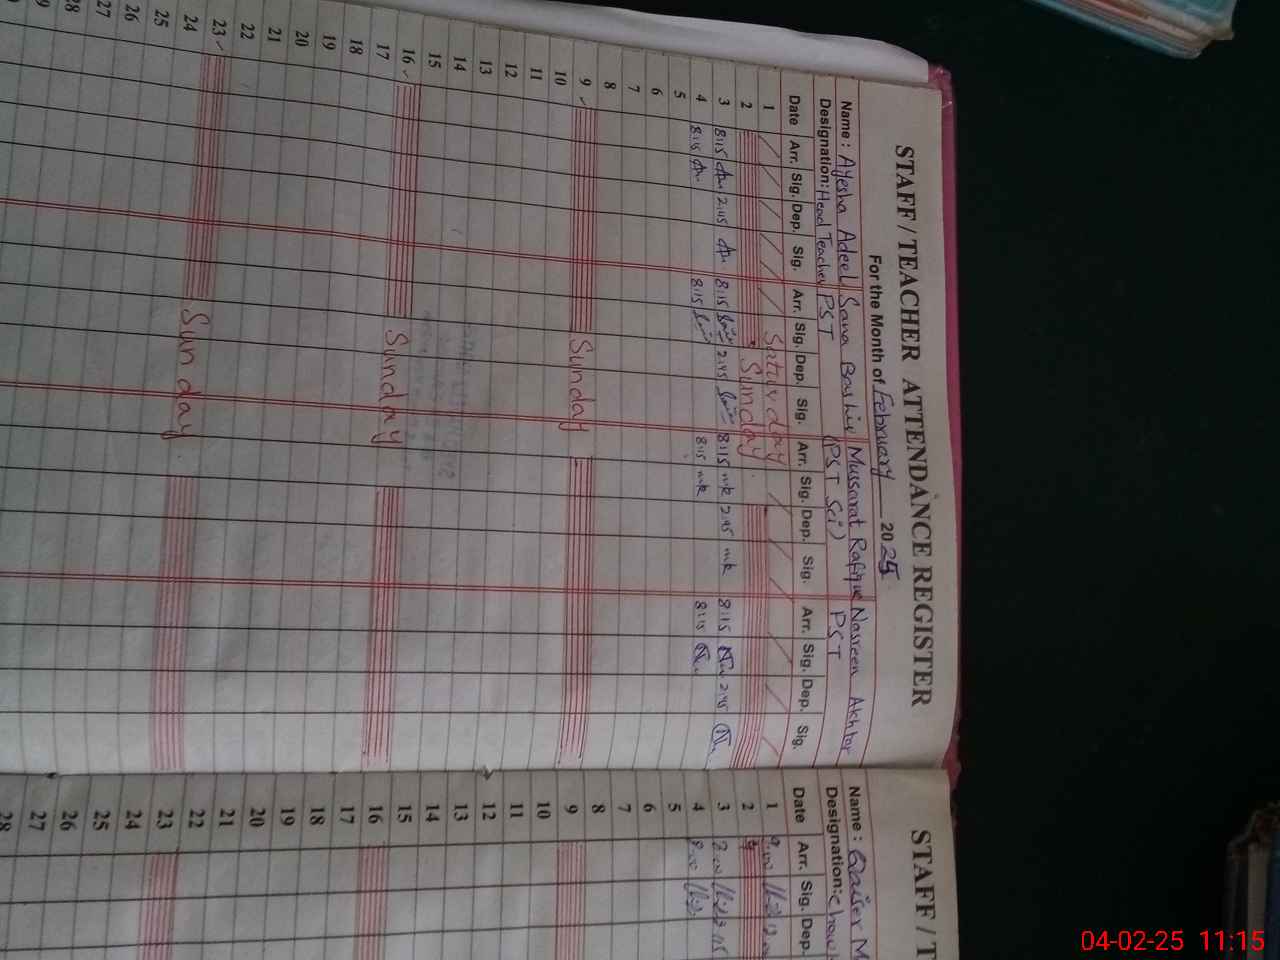 STAFF / TEACHER ATTENDANCE REGISTER
For the Month of February 2025
Name : Ayesha Adeel Sana Bashir Mussarat Rafique Nasreen Akhtar
Designation: Head Teacher PST (PST Sci) PST
Date Arr. Sig. Dep. Sig. Arr. Sig. Dep. Sig. Arr. Sig. Dep. Sig. Arr. Sig. Dep. Sig.
1 Saturday
2 Sunday
3 8:15 2:45 8:15 2:45 8:15 mk 2:45 mk 8:15 2:45
4 8:15 8:15 8:15 mk 8:15
5
6
7
8
9 Sunday
10
11
12
13
14
15
16 Sunday
17
18
19
20
21
22
23 Sunday
24
25
26
27
28
STAFF / T
Name : Qaiser M
Designation:
Date Arr. Sig. Dep.
1
2
3
4
5
6
7
8
9
10
11
12
13
14
15
16
17
18
19
20
21
22
23
24
25
26
27
28
04-02-25 11:15